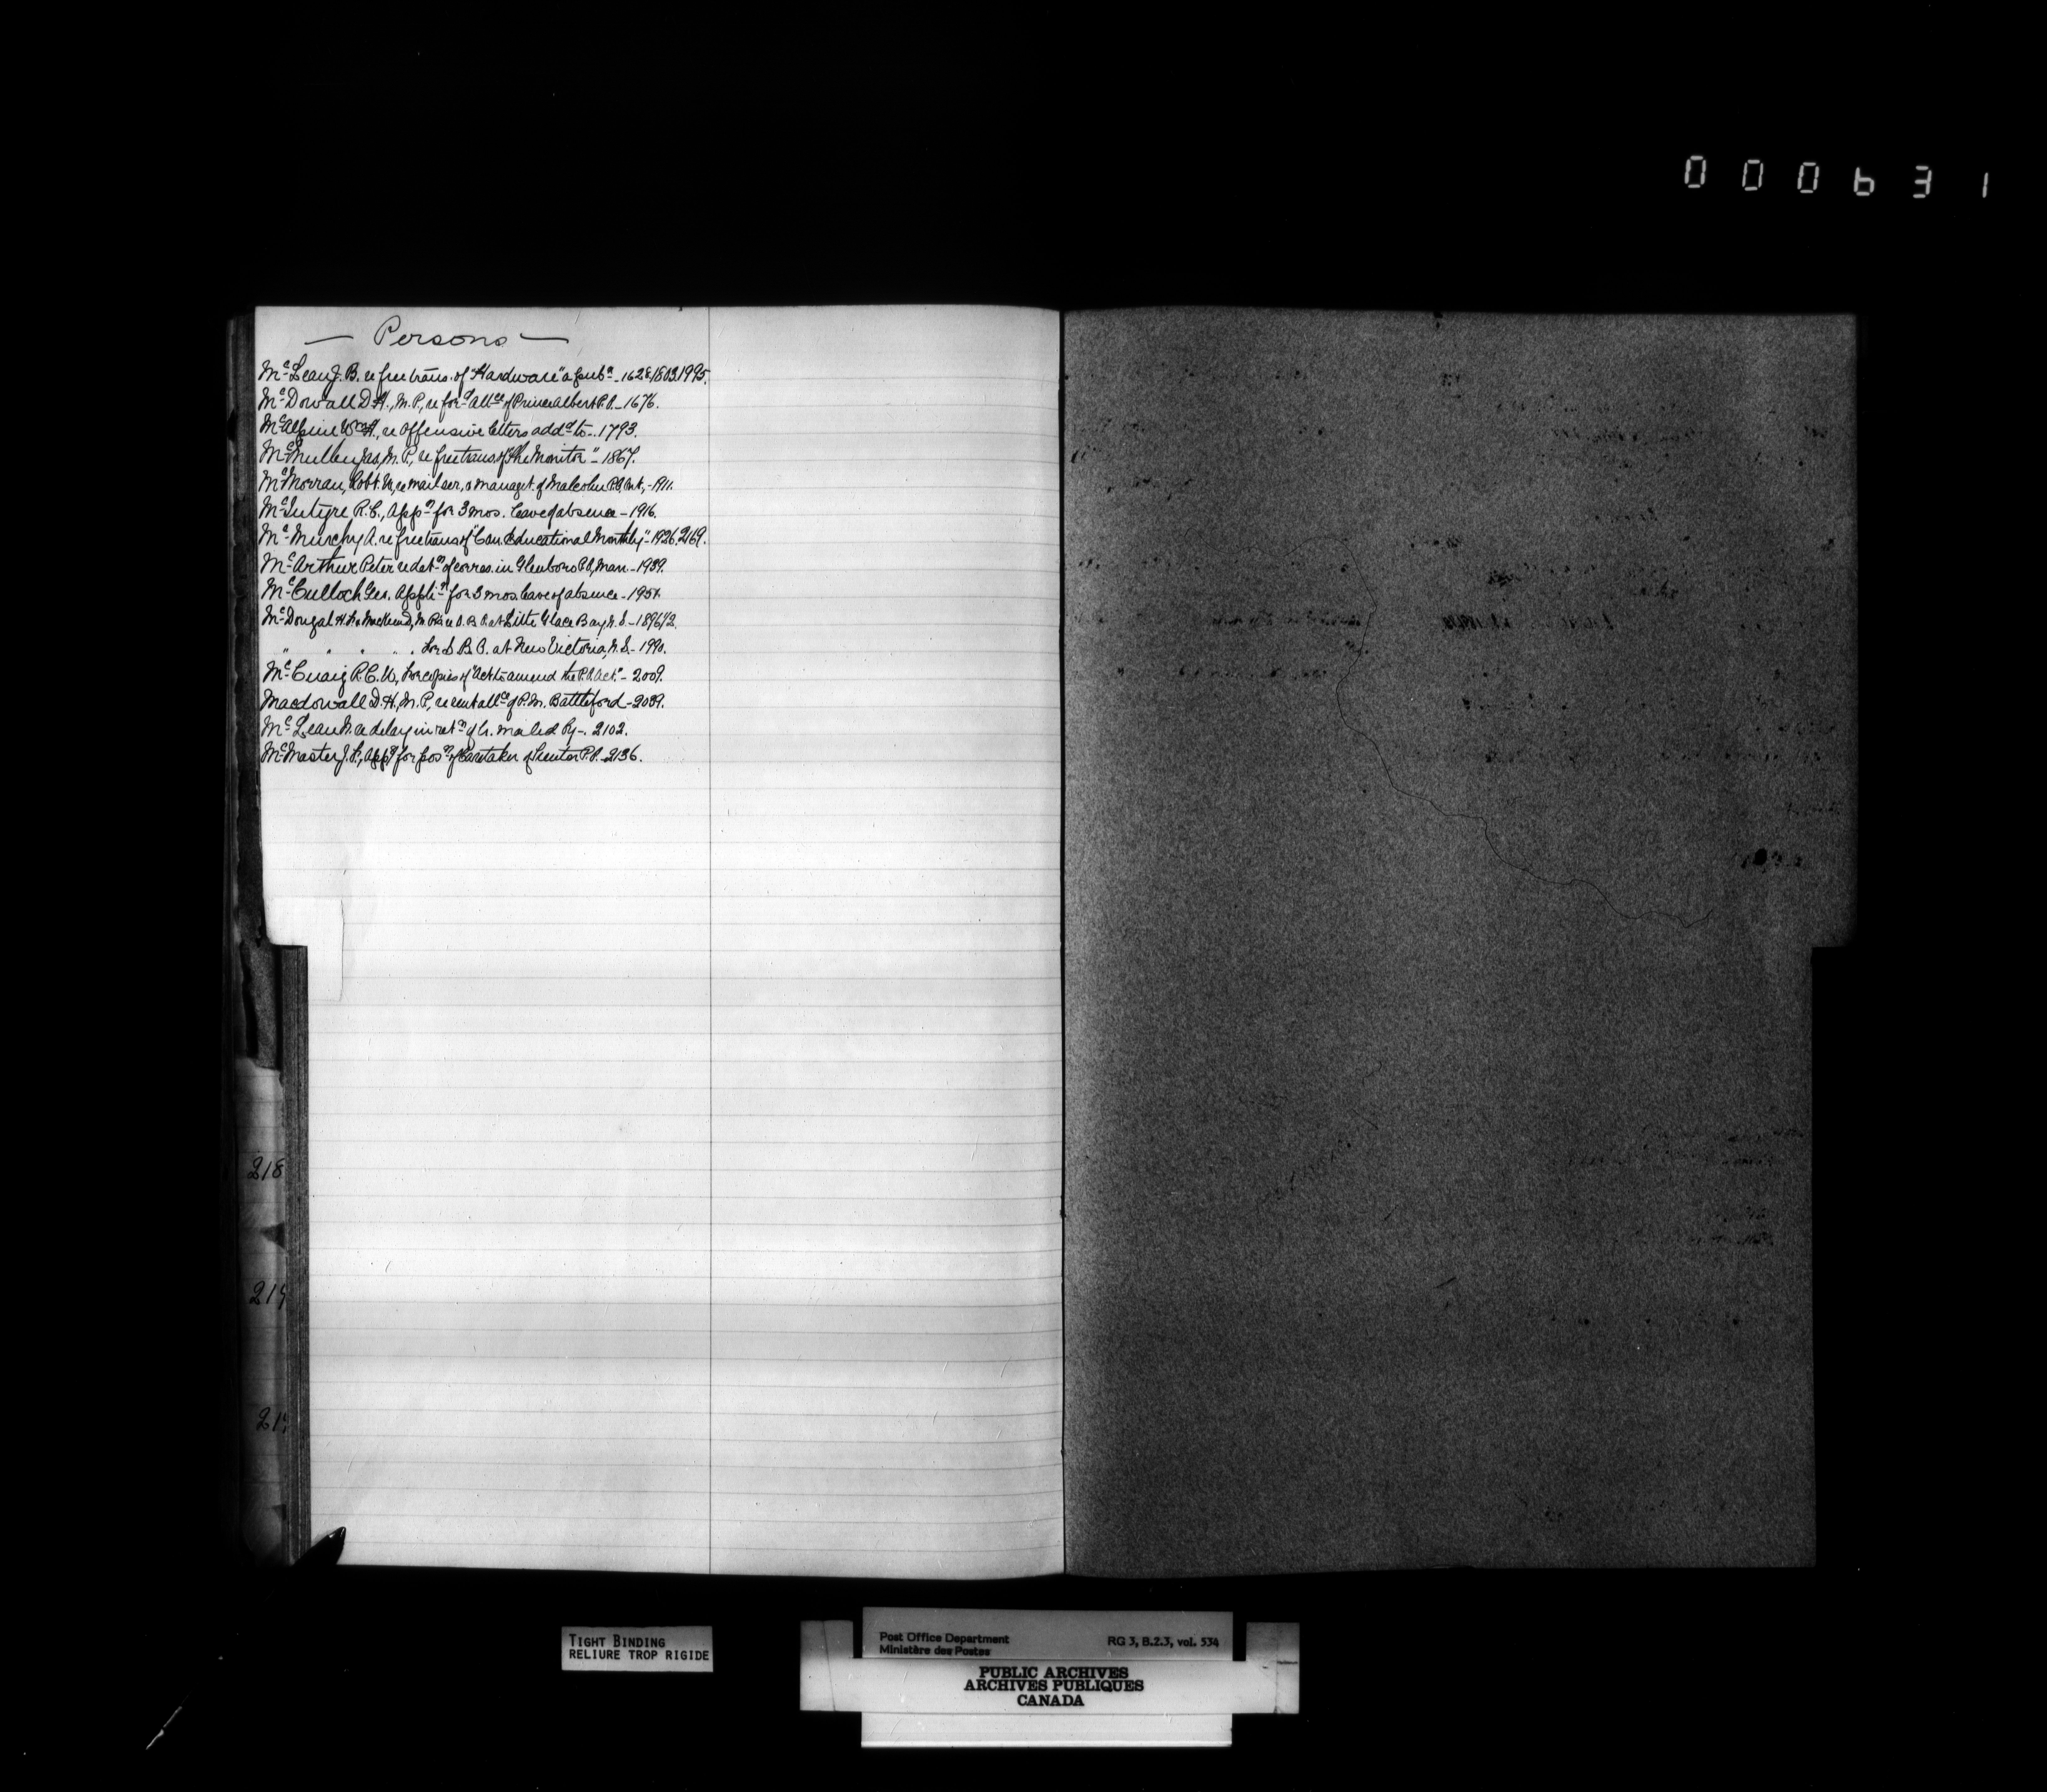 000631
— Persons —
McLean J. B. re free trans. of "Hardware" a pubn - 1628, 1803, 1995.
McDowall D. H., M.P., re ford allce of Prince Albert P.O. - 1676.
McAlpine Wm H., re Offensive letters addd to - 1793.
McMullen Jas, M.P., re free trans. of "The Monitor" - 1867.
McMorran, Robt. re mail ser. & managet. of Malcolm P.O., Ont., - 1911.
McIntyre R. C., Appn for 3 mos. leave of absence - 1916.
McMurchy A. re free trans of "Can. Educational Monthly" - 1926, 2169.
McArthur Peter re detn of corres. in Glenboro P.O., Man. - 1939.
McCulloch Geo. Applin for 3 mos. leave of absence - 1951.
McDougal H. F. & MacKeen D., M.Ps. re S. B. at Little Glace Bay, N.S. - 1896 1/2.
" " " " " for S. B. O. at New Victoria, N.S. - 1990.
McCuaig R. C. W., for copies of "Act to amend the P.O. Act." - 2009.
Macdowall D. H., M.P., re rent allce of P.M. Battleford - 2039.
McLean N. re delay in retn of lr. mailed by - 2102.
McMaster J. F., Appn for posn of Caretaker of Trenton P.O. - 2136.
218
219
21
TIGHT BINDING
RELIURE TROP RIGIDE
Post Office Department RG 3, B.2.3, vol. 534
Ministère des Postes
PUBLIC ARCHIVES
ARCHIVES PUBLIQUES
CANADA